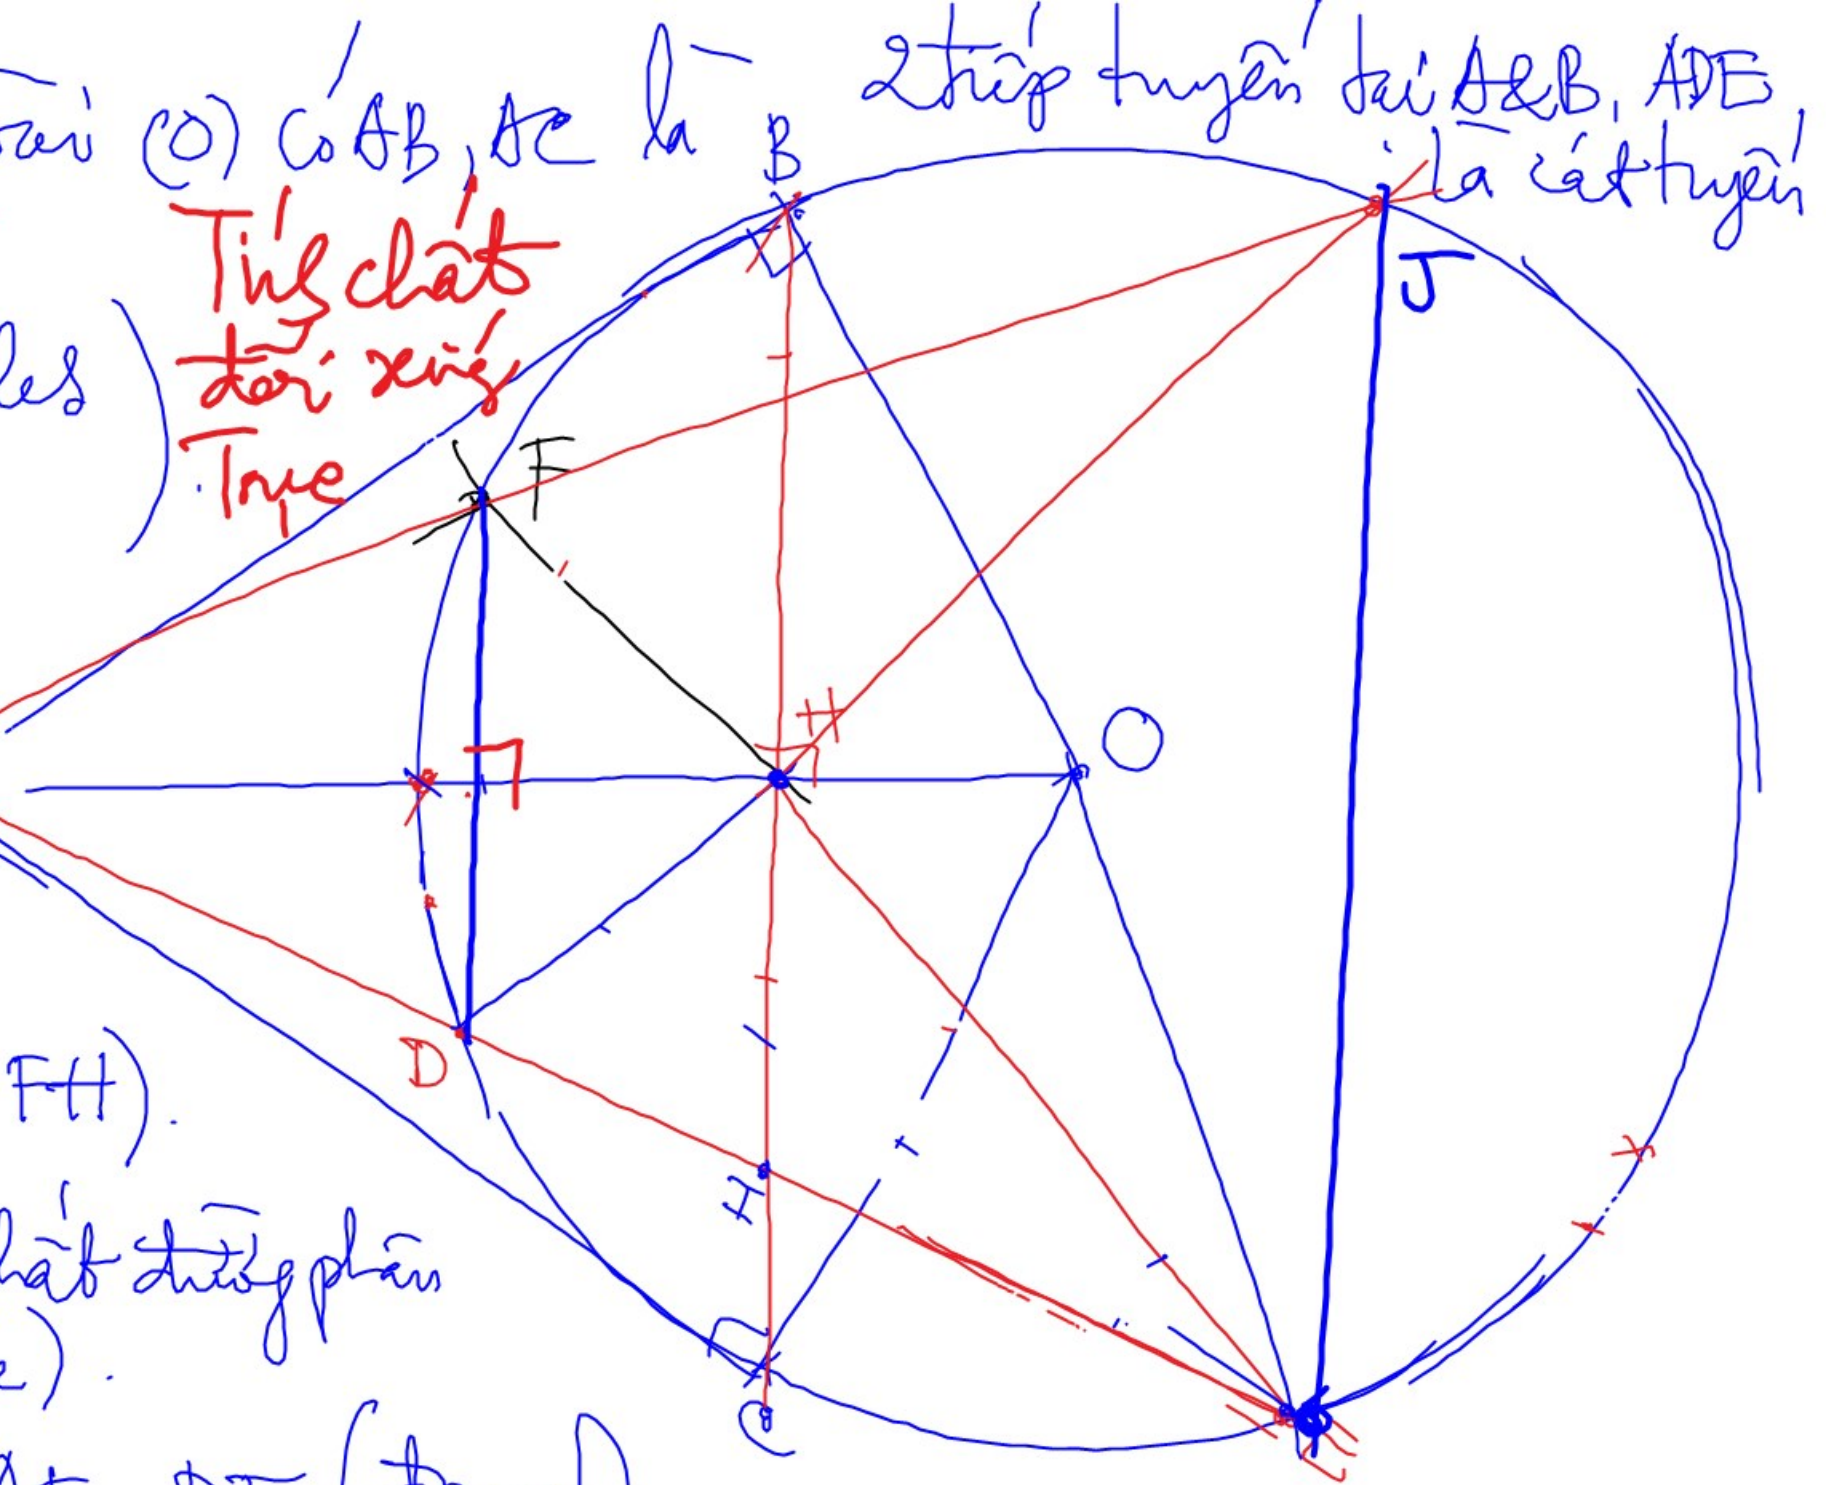 (O) có AB, AC là 2 tiếp tuyến tại A&B, ADE
là cát tuyến
Tính chất
đối xứng
Trục
les)
B
J
F
H
O
D
FH).
I
chất đường phân
C
E